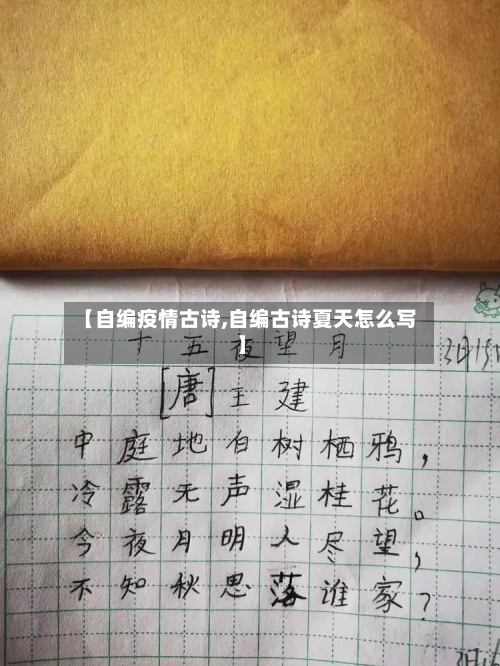 【自编疫情古诗,自编古诗夏天怎么写
】
十五夜望月
[唐]王建
中庭地白树栖鸦，
冷露无声湿桂花。
今夜月明人尽望，
不知秋思落谁家？